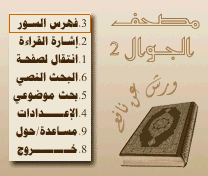 مصحف
الجوال 2
ورش عن نافع
3. فهرس السور
2. إشارة القراءة
1. انتقال لصفحة
6. البحث النصي
5. بحث موضوعي
4. الإعدادات
9. مساعدة/حول
8. خروج